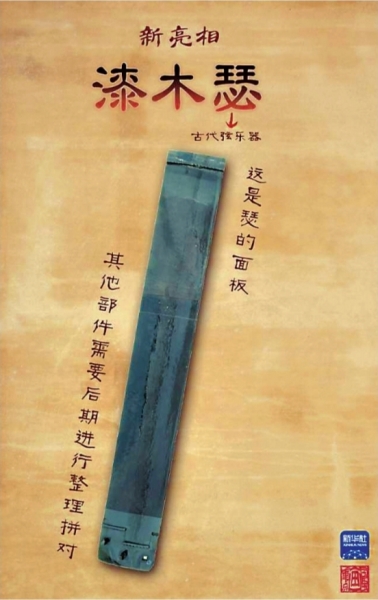 新亮相
漆木瑟
古代弦乐器
这是瑟的面板
其他部件需要后期进行整理拼对
新华社